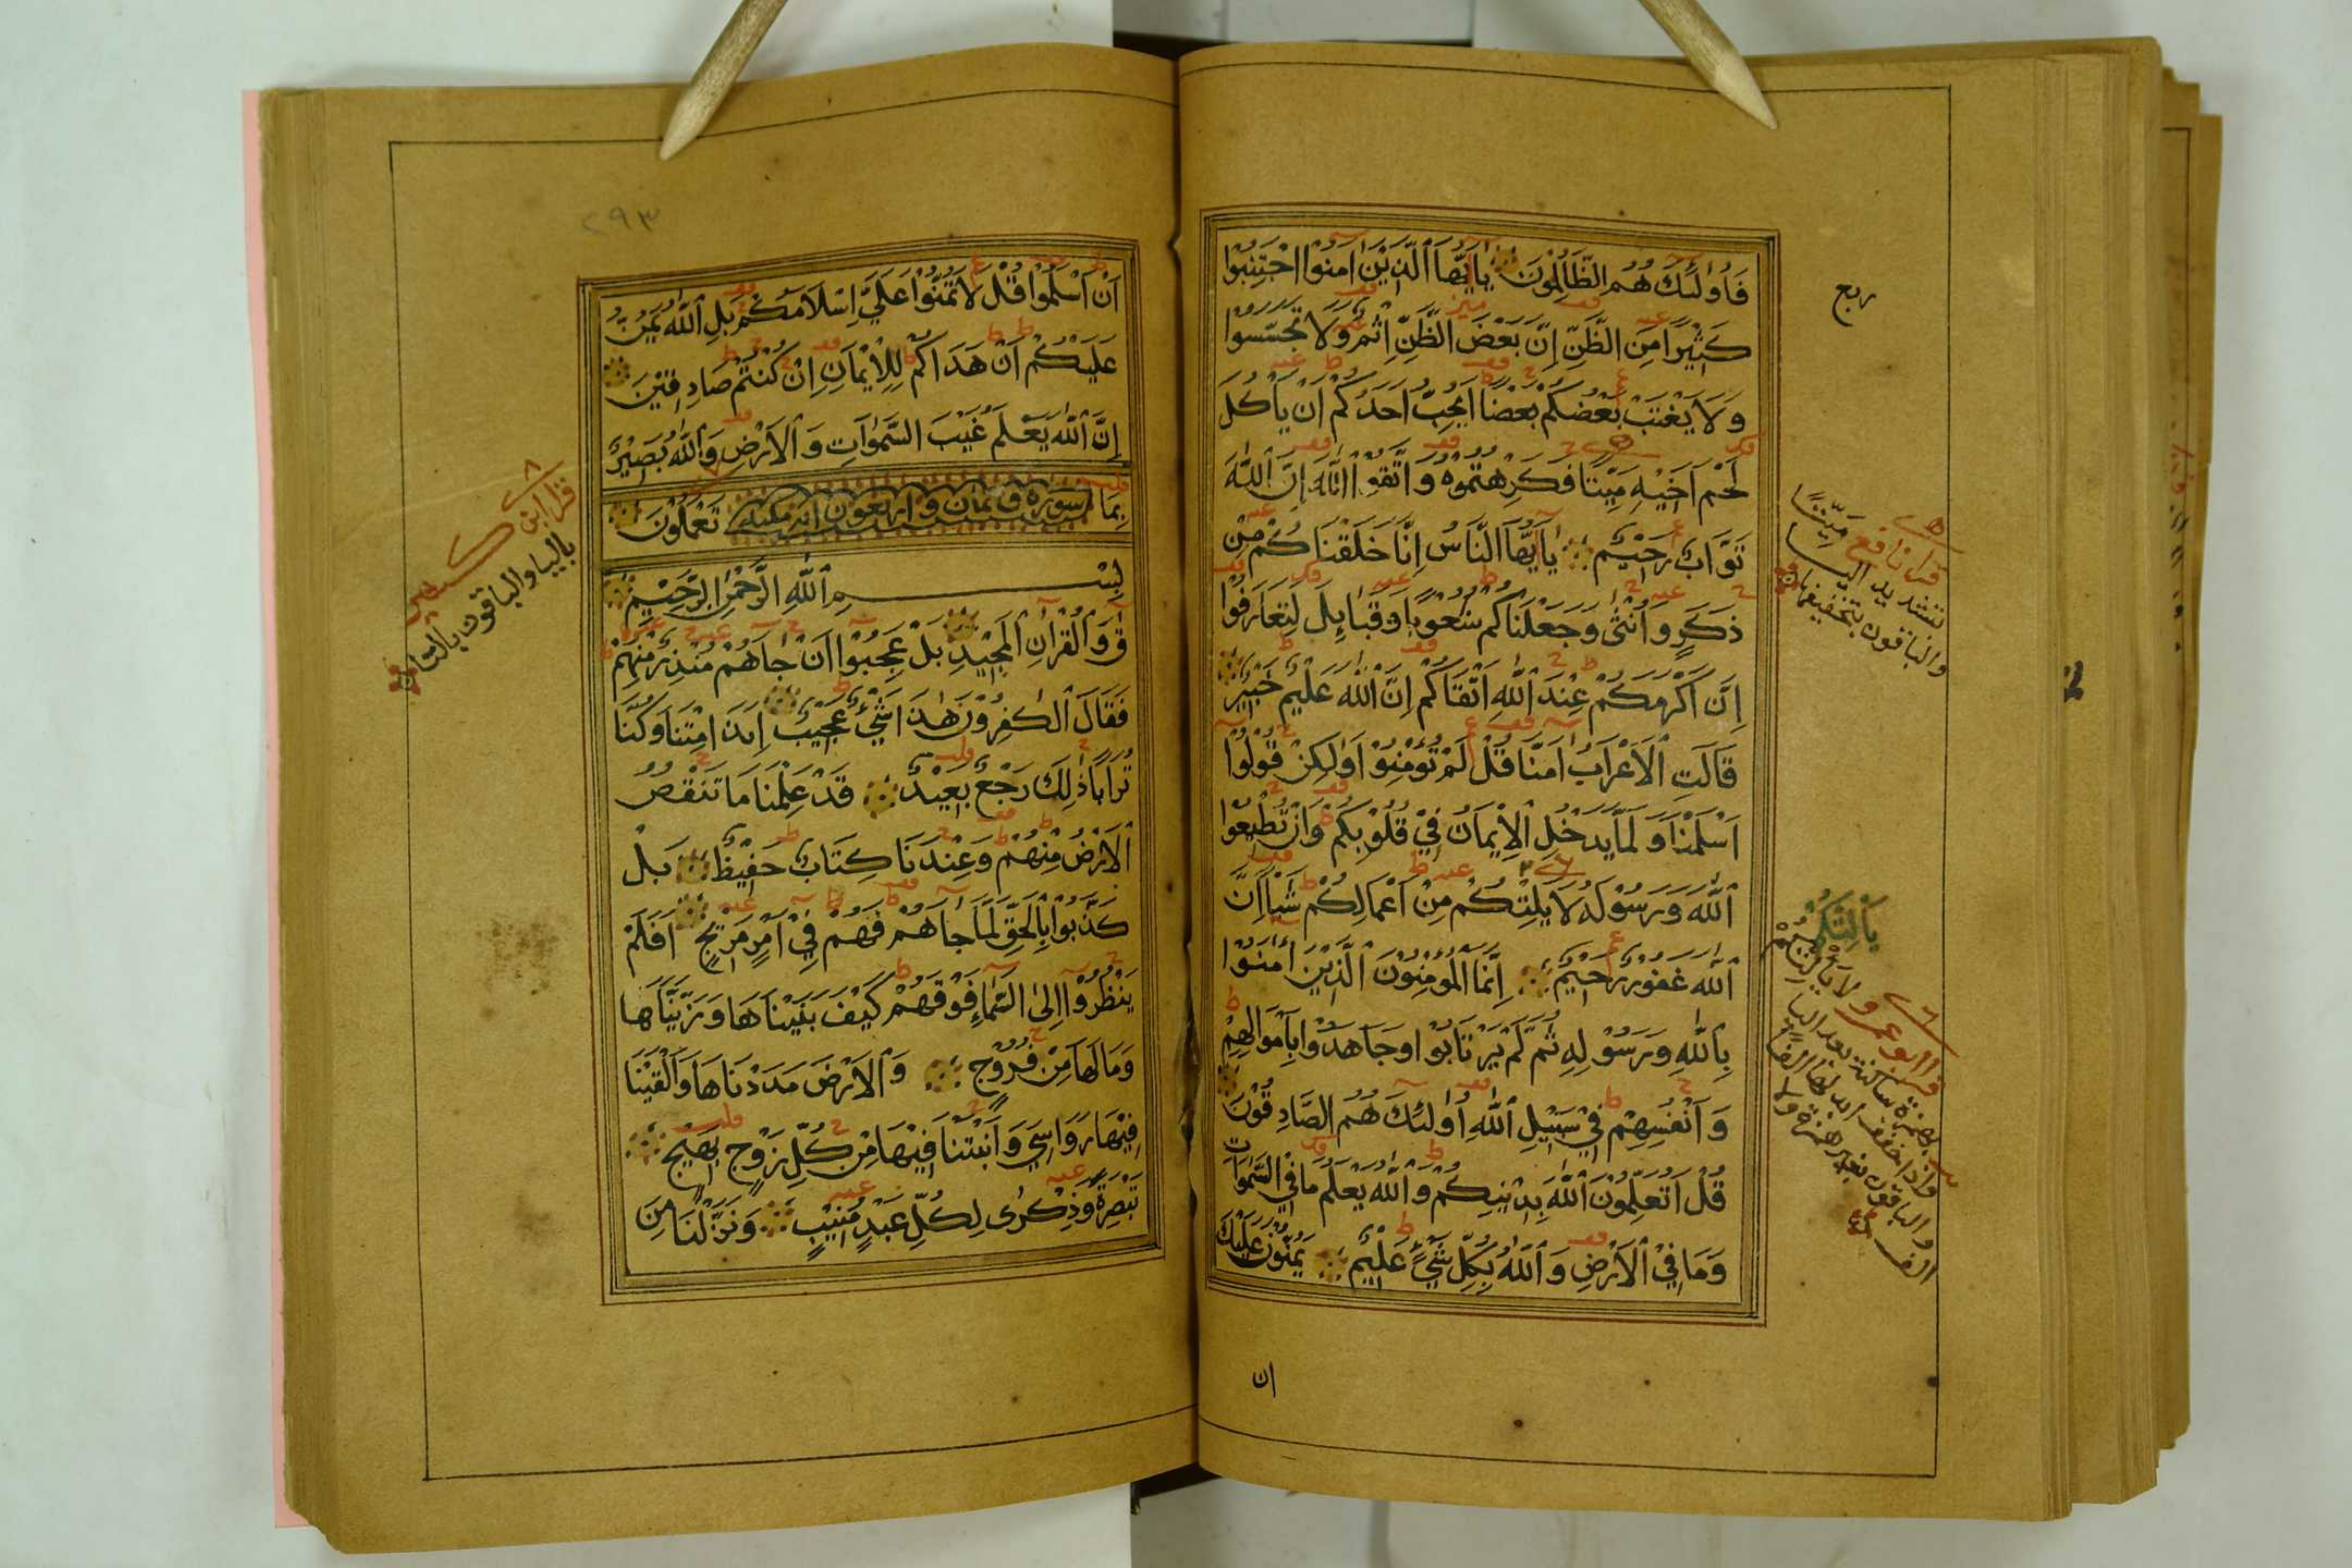 فَأُولٰئِكَ هُمُ الظَّالِمُونَ يَا أَيُّهَا الَّذِيْنَ اٰمَنُوا اجْتَنِبُوْا
كَثِيْرًا مِنَ الظَّنِّ إِنَّ بَعْضَ الظَّنِّ اِثْمٌ وَلَا تَجَسَّسُوْا
وَلَا يَغْتَبْ بَعْضُكُمْ بَعْضًا اَيُحِبُّ اَحَدُكُمْ اَنْ يَاْكُلَ
لَحْمَ اَخِيْهِ مَيْتًا فَكَرِهْتُمُوْهُ وَاتَّقُوْا اللّٰهَ اِنَّ اللّٰهَ
تَوَّابٌ رَحِيْمٌ يَا أَيُّهَا النَّاسُ اِنَّا خَلَقْنَاكُمْ مِنْ
ذَكَرٍ وَاُنْثٰى وَجَعَلْنَاكُمْ شُعُوْبًا وَقَبَائِلَ لِتَعَارَفُوْا
اِنَّ اَكْرَمَكُمْ عِنْدَ اللّٰهِ اَتْقَاكُمْ اِنَّ اللّٰهَ عَلِيْمٌ خَبِيْرٌ
قَالَتِ الْاَعْرَابُ اٰمَنَّا قُلْ لَمْ تُؤْمِنُوْا وَلٰكِنْ قُوْلُوْا
اَسْلَمْنَا وَلَمَّا يَدْخُلِ الْاِيْمَانُ فِيْ قُلُوْبِكُمْ وَاِنْ تُطِيْعُوْا
اللّٰهَ وَرَسُوْلَهُ لَا يَلِتْكُمْ مِنْ اَعْمَالِكُمْ شَيْاً اِنَّ
اللّٰهَ غَفُوْرٌ رَحِيْمٌ اِنَّمَا الْمُؤْمِنُوْنَ الَّذِيْنَ اٰمَنُوْا
بِاللّٰهِ وَرَسُوْلِهِ ثُمَّ لَمْ يَرْتَابُوْا وَجَاهَدُوْا بِاَمْوَالِهِمْ
وَاَنْفُسِهِمْ فِيْ سَبِيْلِ اللّٰهِ اُولٰئِكَ هُمُ الصَّادِقُوْنَ
قُلْ اَتُعَلِّمُوْنَ اللّٰهَ بِدِيْنِكُمْ وَاللّٰهُ يَعْلَمُ مَا فِي السَّمٰوَاتِ
وَمَا فِيْ الْاَرْضِ وَاللّٰهُ بِكُلِّ شَيْءٍ عَلِيْمٌ يَمُنُّوْنَ عَلَيْكَ
ان
ربع
قرا نافع مَيِّتًا
بتشديد اليا
والباقون بتخفيفها
يَأْلِتْكُمْ
قرا ابو عمرو لا يألتكم
بهمزة ساكنة بعد اليا
واذا خفف ابدلها الفا
والباقون بغير همزة ولا
الف
٢٩٣
اَنْ اَسْلَمُوْا قُلْ لَا تَمُنُّوْا عَلَيَّ اِسْلَامَكُمْ بَلِ اللّٰهُ يَمُنُّ
عَلَيْكُمْ اَنْ هَدَاكُمْ لِلْاِيْمَانِ اِنْ كُنْتُمْ صَادِقِيْنَ
اِنَّ اللّٰهَ يَعْلَمُ غَيْبَ السَّمٰوَاتِ وَالْاَرْضِ وَاللّٰهُ بَصِيْرٌ
بِمَا سورة ق ثمان واربعون اية مكية تَعْمَلُوْنَ
بِسْمِ اللّٰهِ الرَّحْمٰنِ الرَّحِيْمِ
قٓ وَالْقُرْاٰنِ الْمَجِيْدِ بَلْ عَجِبُوْا اَنْ جَاهُمْ مُنْذِرٌ مِنْهُمْ
فَقَالَ الْكٰفِرُوْنَ هٰذَا شَيْءٌ عَجِيْبٌ اِىذَا مِتْنَا وَكُنَّا
تُرَابًا ذٰلِكَ رَجْعٌ بَعِيْدٌ قَدْ عَلِمْنَا مَا تَنْقُصُ
الْاَرْضُ مِنْهُمْ وَعِنْدَنَا كِتَابٌ حَفِيْظٌ بَلْ
كَذَّبُوْا بِالْحَقِّ لَمَّا جَاهُمْ فَهُمْ فِيْ اَمْرٍ مَرِيْجٍ اَفَلَمْ
يَنْظُرُوْا اِلَى السَّمَاءِ فَوْقَهُمْ كَيْفَ بَنَيْنَاهَا وَزَيَّنَّاهَا
وَمَا لَهَا مِنْ فُرُوْجٍ وَالْاَرْضَ مَدَدْنَاهَا وَاَلْقَيْنَا
فِيْهَا رَوَاسِيَ وَاَنْبَتْنَا فِيْهَا مِنْ كُلِّ زَوْجٍ بَهِيْجٍ
تَبْصِرَةً وَذِكْرٰى لِكُلِّ عَبْدٍ مُنِيْبٍ وَنَزَّلْنَا مِنَ
قرا ابن كثير
باليا والباقون بالتا